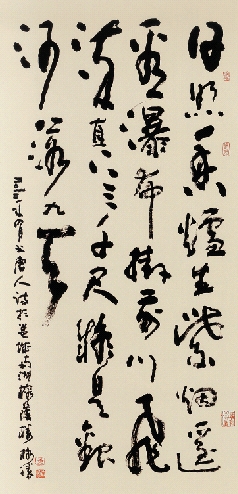 日照香爐生紫烟遥
看瀑布掛前川飛
流直下三千尺疑是銀
河落九天
年四月書唐人詩於